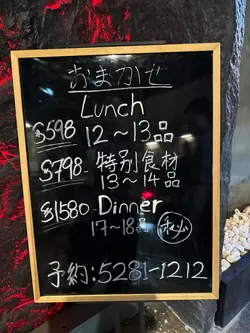 おまかせ
Lunch
$598 12~13品
$798- 特別食材
13~14品
$1580-Dinner
17~18品 秘
予約:5281-1212